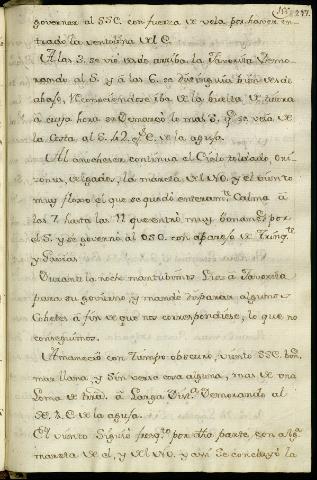 247.
governar al SSE. con fuerza de vela por haver en-
trado la ventolina del E.
A las 3. se vió desde arriba la Favorita Demo-
rando al S. y á las 6. se distinguia bien desde
abajo, reconociendose iba de la buelta de fuera
á cuya hora se Demarcó lo mas S. qe. se veía de
la Costa al S. 42. E. de la aguja.
Al anochecer continua el Cielo toldado, Ori-
zontes, la mareta del NO. y el viento
muy floxo el que se quedó enteramte. Calma á
las 7. hasta las 11 que entró muy bonancible por
el S. y se governó al OSO. con aparejo de Trinqte.
y Gavias.
Durante la noche mantubimos Luz á Favorita
para su govierno, y mandé disparar algunos
Cohetes á fin de que nos correspondiese, lo que no
conseguimos.
Amaneció con tiempo obscuro, viento SSE. bon.
mar llana, y sin verse cosa alguna, mas de una
Loma de tierra á Larga Dista. Demorando al
de la aguja.
El viento Siguió fresqto. por dha parte, con alga.
mareta de el, y del NO. y así se concluyó la